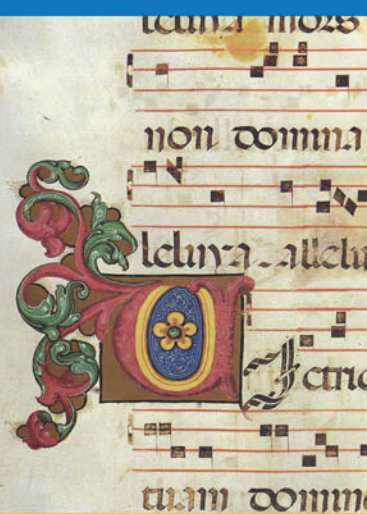 leluya mors
non domina
lleluya - alleluy
U Ictric
tuam domine